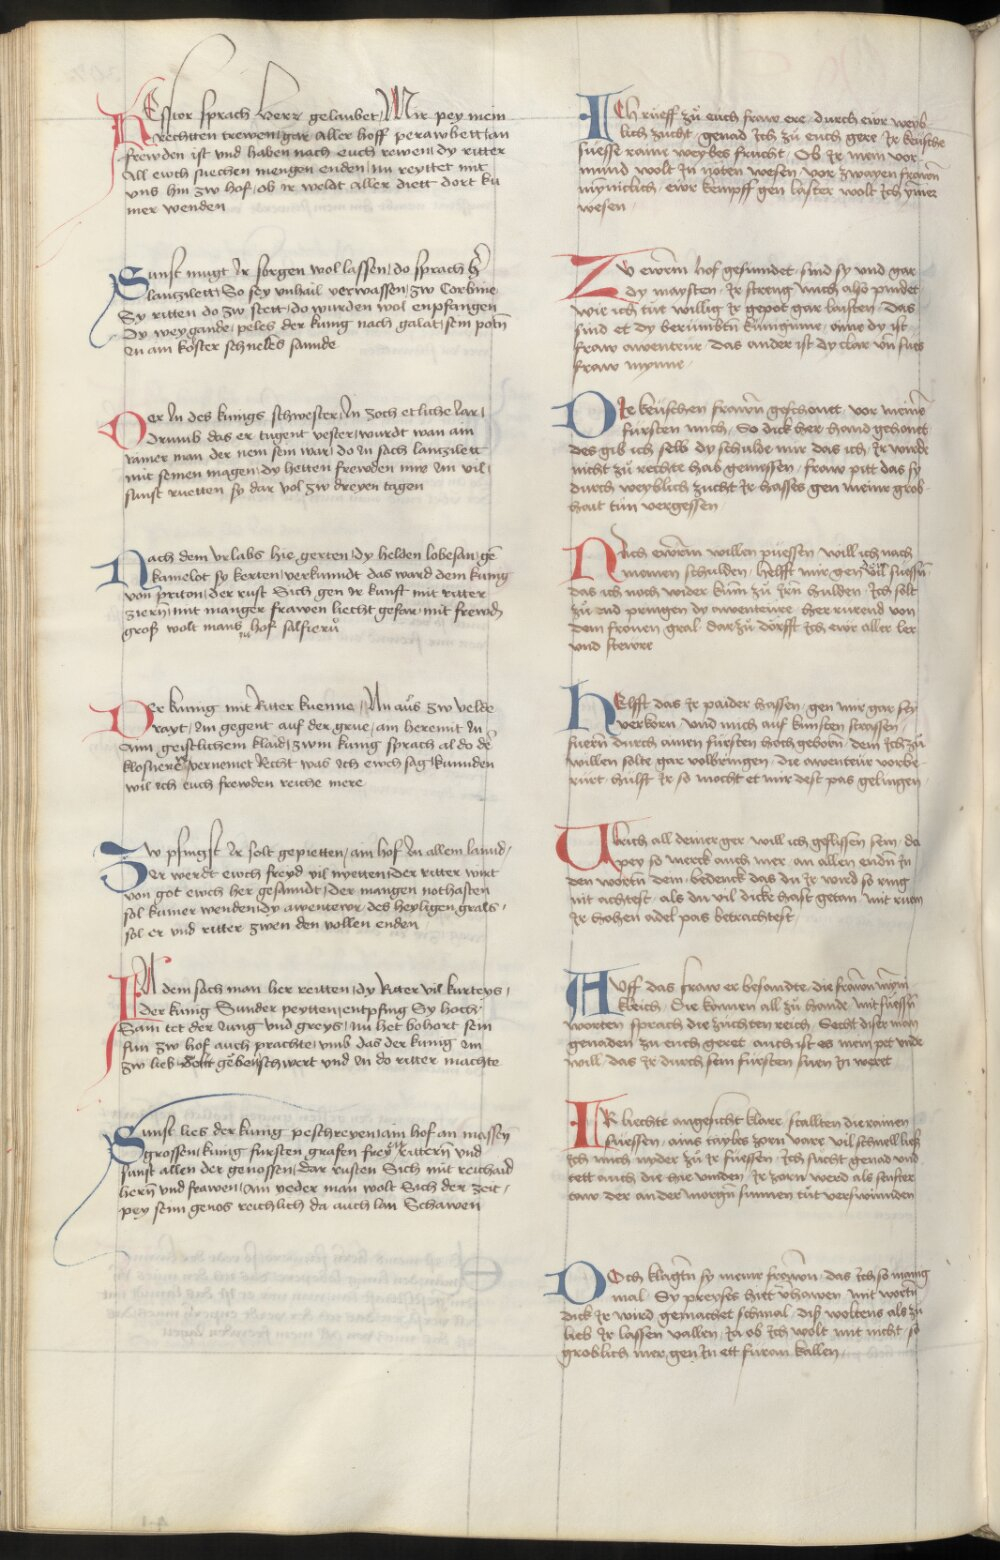 HEsstor sprach herr gelaubet / Mir pey mein
Rechtten trewen / gar aller hoff perawbett / an
frewden ist vnd haben nach euch rewen / dy ritter
All ewch suechen mengen enden / nu reyttet mit
vns hin zw hof / ob ir weldt aller diett dort ku
mer wenden
Sunst mugt Ir sorgen wol lassen / do sprach her
lanzilett / So sey vnhail verwassen / zw Corbine
Sy ritten do zw stett / do wurden wol enpfangen
Dy weygande / peles der kunig nach galat / sein potn
In am koster schnelles sannde
Der In des kunigs schwester / In zoch etliche Iar /
Drumb das er tugent vester / wurdt wan am
rainer man der nem sein war / do In sach lanzilett
mit seinen magen / dy hetten frewden inne Im vil /
sunst ruetten sy dar vol zw dreyen tagen
Nach dem vrlabs hie gerten / dy helden lobesan / gen
kamelot sy kerten / verkunndt das ward dem kunig
von priton / der rust Sich gen Ir kunft mit ritter
ziern / mit manger frawen liecht gefar / mit frewdn
groß wolt mans zu hof salfiern
Der kunig mit Ritter kuenne / Nu aus zw velde
rayt / Im gegent auf der grue / am heremit In
Ainn geistlichem klaid / zwm kunig sprach al do der
klosnere / vernemet Recht was Ich ewch sag / kunnden
wil Ich euch frewden reiche mere
Zw pfingst Ir solt gepietten / ain hof In allem lannd /
Der werdt ewch freyd vil nyetten / der ritter wirt
von got ewch her gesanndt / der mangen nothaften
sol kumer wenden / dy awentewr / des heyligen grals /
sol er vnd ritter zwen den vollen enden
IN dem sach man her reitten / dy Ritter vil kurteys /
Der kunig Sunder peytten / entpfing Sy hoch
Sam tet der Iung vnd greys / nu het bohort sein
sun zw hof auch prachte / vmb das der kunig Im
zw lieb solt geben schwert vnd In do ritter machte
Sunst lies der kunig peschreyen / ain hof an massen
grossen / kunig fursten grafen freyen rittern vnd
sunst allen der genossen / dar rusten Sich mit reichaid
hern vnd frawen / Ain yeder man wolt Sich der zeit /
pey seim genos reichlich da auch lan Schawen
ICh rueff zu euch fraw ere / durch ewr weyb
lich zucht / genad Ich zu euch gere / Ir keusche
suesse raine weybes frucht / Ob Ir mein vor
mund wolt In nöten wesen / vor zwayen frawen
mynnclich / ewr kempff gen laster wolt Ich ymer
wesen
ZV ewrm hof gesunndet / sind sy vnd gar
dy maysten / Ir streng mich also pindet
wir ich tüt willig Ir gepot gar laisten / Das
sind et dy berumbten kuniginne / aine dy ist
fraw awenteur / das ander ist dy clar vnd sues
fraw mynne
DIe keuschen frawn geschont / vor meinem
fursten mich / So dick her hand geschont
des gib ich selb dy schulde mir das ich / Ir wirde
nicht zu rechte hab gemessen / fraw pitt das sy
durch weyblich zucht Ir hasses gen meiner grob
hait tun vergessen
NAch ewrm willen puessen / will ich nach
meinen schulden / helfft mir gen vil suessen
das ich noch wider kum zu Irn hulden / Ich solt
zu end pringen dy awenteure / her rurend von
dem fronen gral / dar zu dorfft Ich ewr aller ler
vnd stewre
HElfft das Ir paider hassen / gen mir gar sey
verkorn / vnd mich auf kunsten strassen
fuern durch ainen fursten hoch geborn / dem Ich zu
willen solte gar volbringen / die awenteur vorbe
rurt / hulft Ir so mocht et mir dest pas gelingen
Vlrich all deiner ger will ich geflissen sein / da
pey so merck auch mer / an allen endn In
den wortn dein / bedenck das du Ir wird so ring
nit achtest / als du vil dicke hast getan / mit ruem
Ir hohen adel pas betrachtest
AUff das fraw er besandte / die frawn mynn
kleich / Die komen all zu hande / mit suessen
worten sprach die zuchten reich / Secht diser man
genaden zu euch geret / auch ist es mein pet vnde
will / das Ir durch sein fursten suen In weret
IR liechte angesicht klare / stallten die rainen
suessen / ains taylbs zorn vare / vil schnell ließ
Ich mich nyder zu Ir fuessen / Ich sucht genad vnd
tett auch die hie vinden / Ir zorn werd als senfter
taw der an der morgn sunnen tüt verswinnden
DOch klagtn sy meiner frawen / das Ich so manig
mal / Sy preyses hiett verhawen / mit wortn
dick Ir wird gemachet schmal / diß woltens als zu
lieb Ir lassen vallen / Ia ob Ich wolt mit nicht / so
groblich mer gen In ett furan kallen